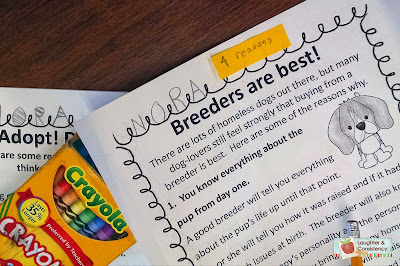 4 reasons
NORA
Breeders are best!
There are lots of homeless dogs out there, but many
dog-lovers still feel strongly that buying from a
breeder is best. Here are some of the reasons why.
1. You know everything about the
pup from day one.
A good breeder will tell you everything
about the pup's life up until that point.
or she will tell you how it was raised and if it had
issues at birth. The breeder will also
py's personal
the person
NORA
Adopt!
are some re
think
Crayola
CRAYO
Preferred by Teachers
Laughter &
Consistency